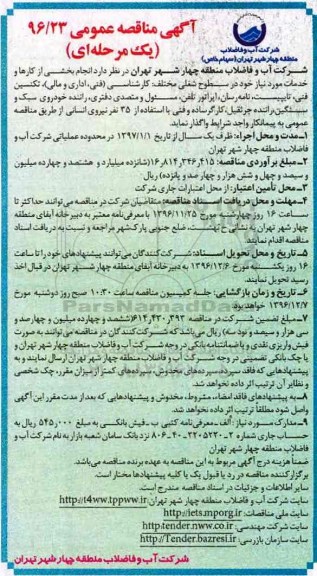 شرکت آب و فاضلاب
منطقه چهار شهر تهران (سهامی خاص)
آگهی مناقصه عمومی ۹۶/۲۳
(یک مرحله‌ای)
شرکت آب و فاضلاب منطقه چهار شهر تهران در نظر دارد انجام بخشی از کارها و
خدمات مورد نیاز خود در سطوح شغلی مختلف: کارشناسی (فنی، اداری و مالی)، تکنسین
فنی، تایپیست، نامه‌رسان، اپراتور تلفن، مسئول و متصدی دفتری، راننده خودروی سبک و
سنگین، راننده جرثقیل، کارگر ساده و فنی با استفاده از ۳۵ نفر نیروی انسانی از طریق مناقصه
عمومی به پیمانکار واجد شرایط واگذار نماید.
۱-مدت و محل اجراء: ظرف یک سال از تاریخ ۱۳۹۷/۱/۱ در محدوده عملیاتی شرکت آب و
فاضلاب منطقه چهار شهر تهران
۲-مبلغ برآوردی مناقصه: ۱۶,۸۱۴,۳۴۶,۴۱۵ (شانزده میلیارد و هشتصد و چهارده میلیون
و سیصد و چهل و شش هزار و چهار صد و پانزده) ریال
۳-محل تأمین اعتبار: از محل اعتبارات جاری شرکت
۴-مهلت و محل دریافت اسناد مناقصه: متقاضیان شرکت در مناقصه می‌توانند حداکثر تا
ساعت ۱۶ روز چهارشنبه مورخ ۱۳۹۶/۱۱/۲۵ با معرفی‌نامه معتبر به دبیرخانه آبفای منطقه
چهار شهر تهران به نشانی خ بهشت، ضلع جنوبی پارک‌شهر مراجعه و نسبت به دریافت اسناد
مناقصه اقدام نمایند.
۵-تاریخ و محل تحویل اسناد: شرکت‌کنندگان می‌توانند پیشنهادهای خود را تا ساعت
۱۶ روز یکشنبه مورخ ۱۳۹۶/۱۲/۶ به دبیرخانه آبفای منطقه چهار شهر تهران در قبال اخذ
رسید تحویل نمایند.
۶-تاریخ و زمان بازگشایی: جلسه کمیسیون مناقصه ساعت ۱۰:۳۰ صبح روز دوشنبه مورخ
۱۳۹۶/۱۲/۷ خواهد بود.
۷-مبلغ تضمین شرکت در مناقصه ۶۱۴,۴۳۰,۳۹۳ (ششصد و چهارده میلیون و چهارصد و
سی هزار و سیصد و نود سه) ریال می‌باشد که شرکت‌کنندگان در مناقصه می‌توانند به صورت
فیش واریزی نقدی و یا ضمانتنامه بانکی در وجه شرکت آب و فاضلاب منطقه چهار شهر تهران و
یا چک بانکی تضمینی در وجه شرکت آب و فاضلاب منطقه چهار شهر تهران ارسال نمایند و به
پیشنهادهایی که فاقد سپرده، سپرده‌های مخدوش، سپرده‌های کمتر از میزان مقرر، چک شخصی
و نظایر آن ترتیب اثر داده نخواهد شد.
۸-به پیشنهادهای فاقد امضاء، مشروط، مخدوش و پیشنهادهایی که بعد از مدت مقرر این آگهی
واصل شود مطلقاً ترتیب اثر داده نخواهد شد.
۹-مدارک مورد نیاز: الف-معرفی‌نامه کتبی ب-فیش بانکی به مبلغ ۵۴۵,۰۰۰ ریال به
حساب جاری شماره ۲-۲۲۰۵۲۲۰-۴۰-۸۰۶ نزد بانک سامان شعبه بازار به نام شرکت آب و
فاضلاب منطقه چهار شهر تهران
ضمناً هزینه درج آگهی مربوط به این مناقصه به عهده برنده مناقصه می‌باشد.
برگزارکننده مناقصه در رد یا قبول یک یا کلیه پیشنهادها مختار است.
سایر اطلاعات و جزئیات در اسناد مناقصه مندرج است.
سایت شرکت آب و فاضلاب منطقه چهار شهر تهران http://t4ww.tppww.ir
سایت ملی مناقصات: http://iets.mporg.ir
سایت شرکت مهندسی: http://tender.nww.co.ir
سایت سازمان بازرسی: http://Tender.bazresi.ir
شرکت آب و فاضلاب منطقه چهار شهر تهران